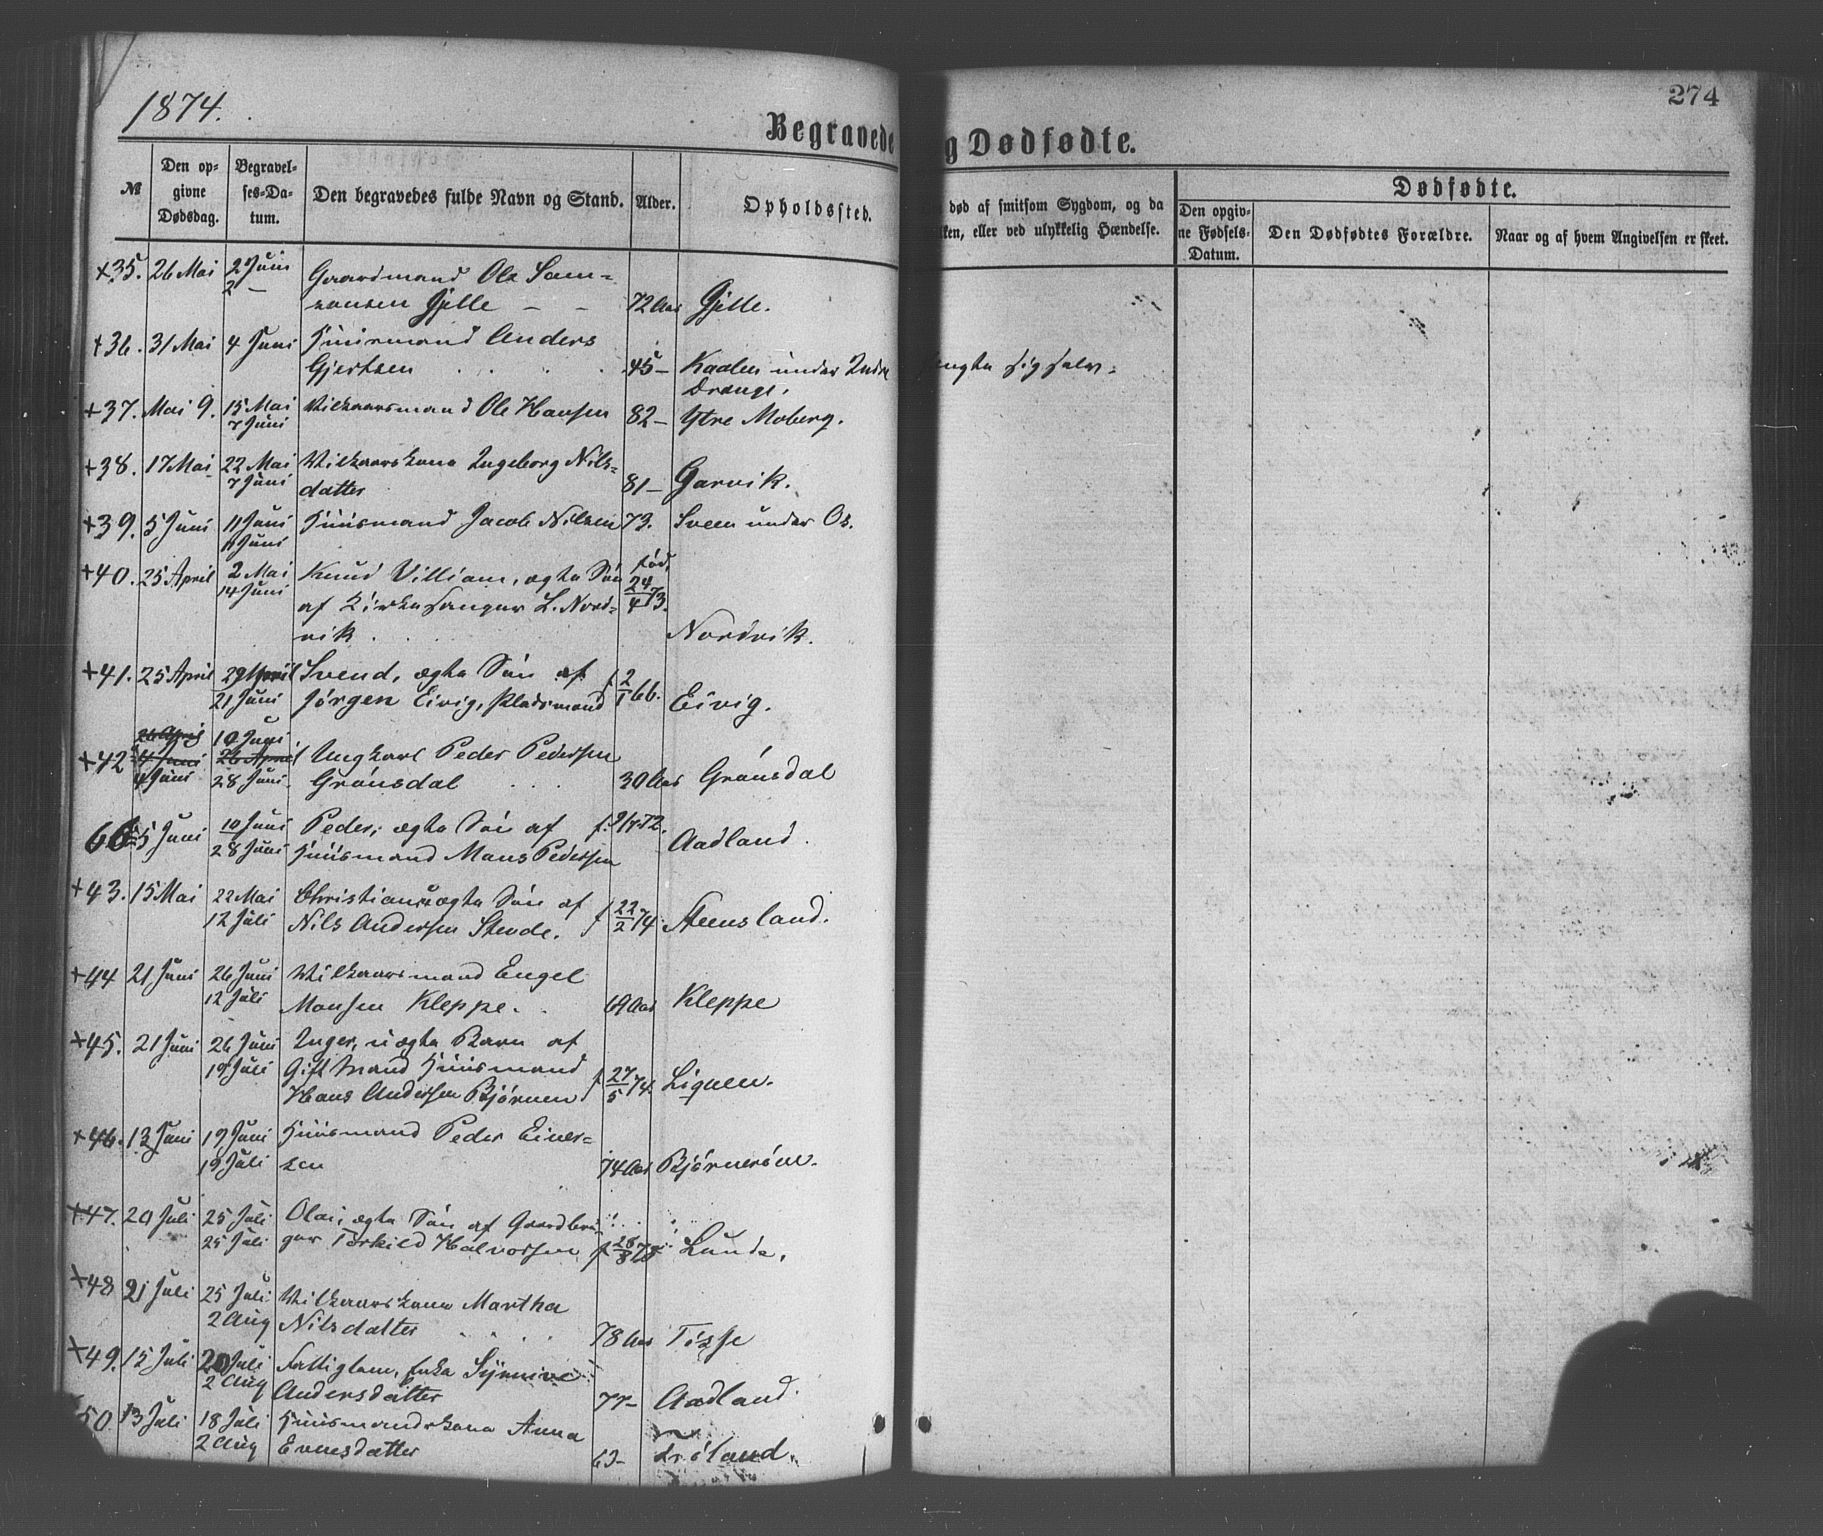 1874.
274
Begravede
g Dødfødte.
№
Den op-
givne
Dødsdag.
Begravel-
ses-Da-
tum.
Den begravedes fulde Navn og Stand.
Alder.
Opholdssted.
død af smitsom Sygdom, og da
ken, eller ved ulykkelig Hændelse.
Dødfødte.
Den opgiv-
ne Fødsels-
Datum.
Den Dødfødtes Forældre.
Naar og af hvem Angivelsen er skeet.
+35. 26 Mai 2 Juni Gaardmand Ole Sam-
2 — sonsen Gjelle — — 72 Aar Gjelle.
+36. 31 Mai 4 Juni Huusmand Anders
Gjertsen 45 — Kaalen under Indre
Drange. ængte sig selv.
+37. Mai 9. 15 Mai Vilkaarsmand Ole Hansen 82 — Ytre Moberg.
7 Juni
+38. 17 Mai 22 Mai Vilkaarskone Ingeborg Nils-
7 Juni datter 81 — Garvik.
+39. 5 Juni 11 Juni Huusmand Jacob Nilsen 73. Sveen under Os.
11 Juni
+40. 25 April 2 Mai Knud Villiam, ægte Søn fød.
14 Juni af Kirkesanger L. Nord- 24/4 73.
vik Nordvik.
+41. 25 April 29 April Svend, ægte Søn af f. 2/1 66.
21 Juni Jørgen Eivig, Pladsmand Eivig.
26 April 10 Juni
+42 4 Juni 26 April Ungkarl Peder Pedersen
4 Juni 28 Juni. Grønsdal 30 Aar Grønsdal
66 5 Juni 10 Juni Peder, ægte Søn af f. 9/7 72. Aadland.
28 Juni Huusmand Mons Pedersen
+43. 15 Mai 22 Mai Christian, ægte Søn af
12 Juli Nils Andersen Stende. f 22/2 74. Steensland.
+44 21 Juni 26 Juni Vilkaarsmand Engel
12 Juli Monsen Kleppe. 69 Aar Kleppe
+45. 21 Juni 26 Juni Inger, uægte Barn af
19 Juli Gift Mand Huusmand
Hans Andersen Bjørnen f 27/5 74. Liquen.
+46. 13 Juni 19 Juni Huusmand Peder Einer-
19 Juli sen 74 Aar
+47. 20 Juli 25 Juli Olai, ægte Søn af Gaardbru-
25 Juli ger Torkild Halvorsen f 28/8 73 Lunde.
+48 21 Juli 25 Juli Vilkaarskone Martha
2 Aug Nilsdatter 78 Aar Tøsse
+49. 15 Juli 20 Juli Fattiglem, Enke Synnive
2 Aug Andersdatter 77 — Aadland.
50. 13 Juli 18 Juli Huusmandskone Anna
2 Aug Evensdatter 63 —